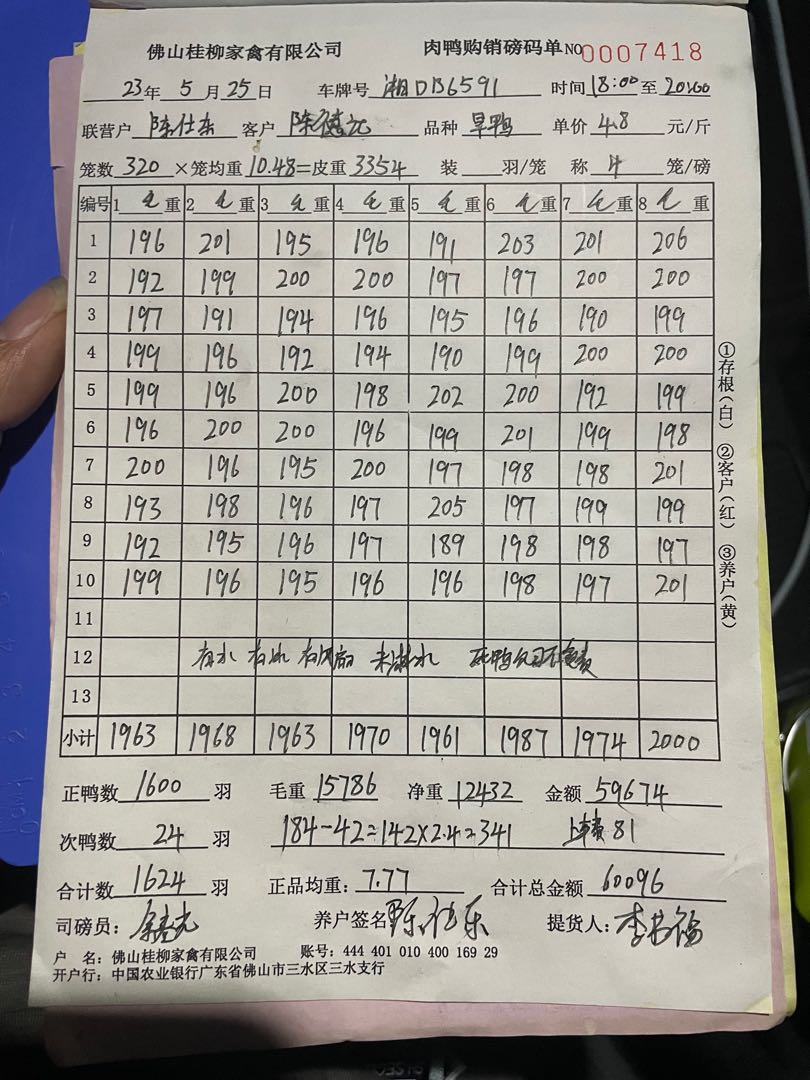 佛山桂柳家禽有限公司 肉鸭购销磅码单 NO 0007418
23年 5月25日 车牌号 湘DB6591 时间 18:00 至 20:00
联营户 陈仕东 客户 陈德元 品种 旱鸭 单价 4.8 元/斤
笼数 320 ×笼均重 10.48=皮重 3354 装 羽/笼 称 4 笼/磅
编号 1 毛 重 2 毛 重 3 毛 重 4 毛 重 5 毛 重 6 毛 重 7 毛 重 8 毛 重
1 196 201 195 196 191 203 201 206
2 192 199 200 200 197 197 200 200
3 197 191 194 196 195 196 190 199
4 199 196 192 194 190 199 200 200
5 199 196 200 198 202 200 192 199
6 196 200 200 196 199 201 199 198
7 200 196 195 200 197 198 198 201
8 193 198 196 197 205 197 199 199
9 192 195 196 197 189 198 198 197
10 199 196 195 196 196 198 197 201
11
12 有水 有风扇 未淋水 死鸭公司不负责
13
小计 1963 1968 1963 1970 1961 1987 1974 2000
正鸭数 1600 羽 毛重 15786 净重 12432 金额 59674
次鸭数 24 羽 184-42=142×2.4=341 上车费 81
合计数 1624 羽 正品均重: 7.77 合计总金额 60096
司磅员: 养户签名 陈仕东 提货人: 李
户 名: 佛山桂柳家禽有限公司 账号: 444 401 010 400 169 29
开户行: 中国农业银行广东省佛山市三水区三水支行
①存根(白) ②客户(红) ③养户(黄)